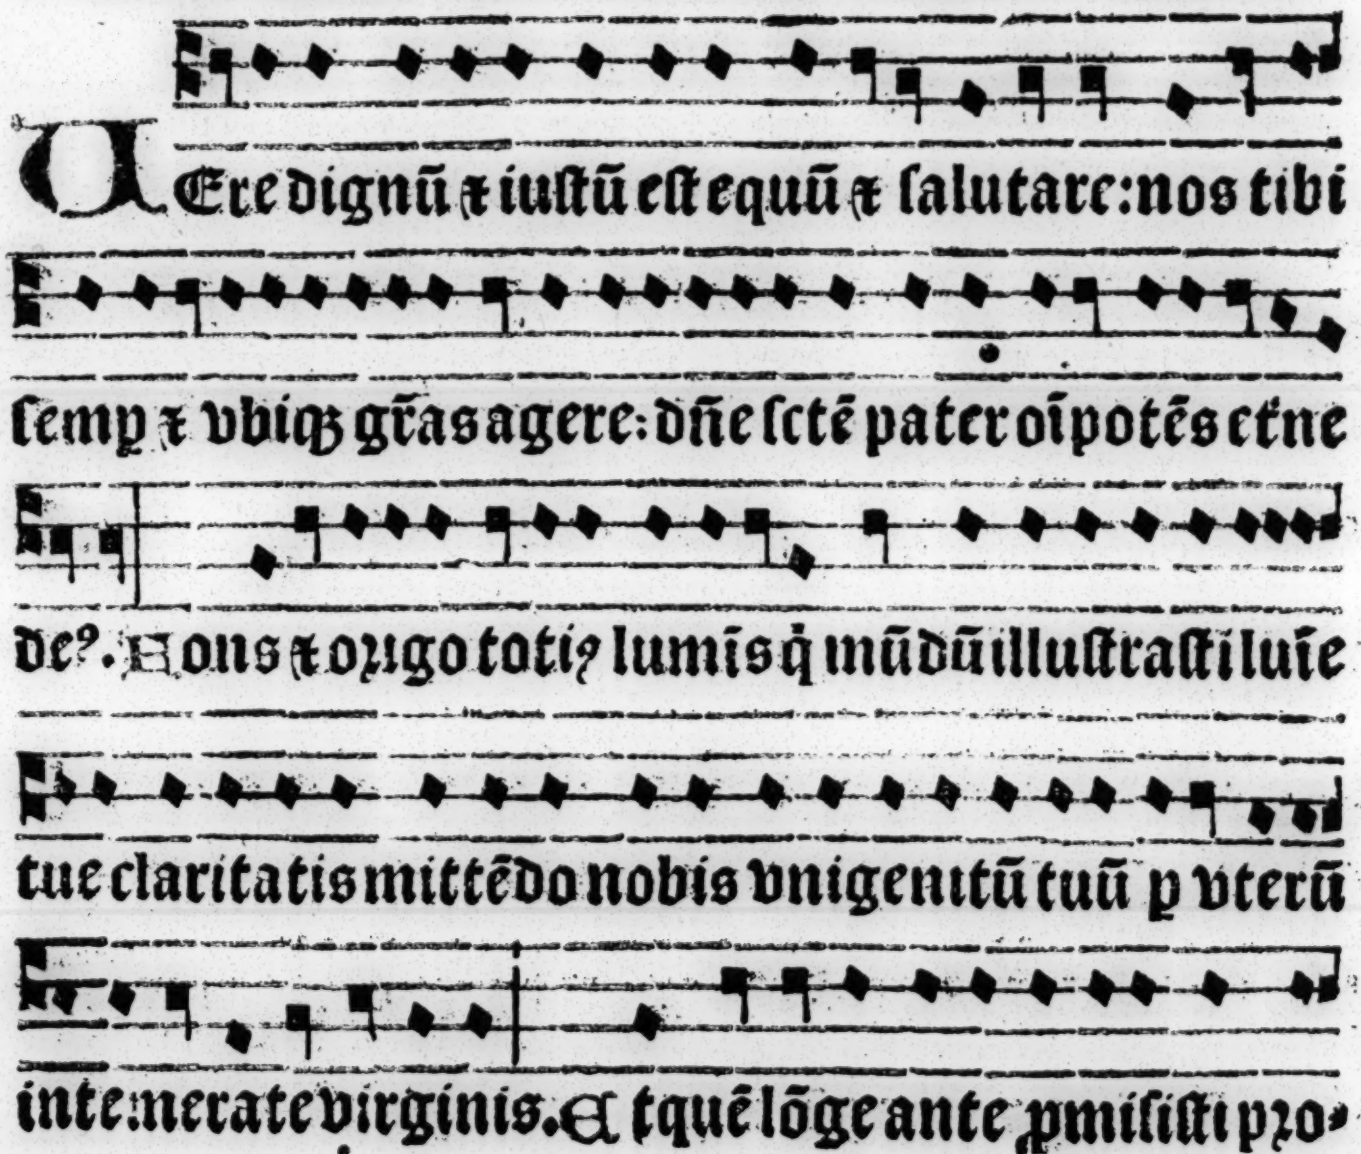 UEre dignū ⁊ iustū est equū ⁊ salutare: nos tibi
semꝑ ⁊ vbiqꝫ gr̄as agere: dn̄e sctē pater oīpotēs et̄ne
deꝰ. Fons ⁊ origo totiꝰ lumīs q̇ mūdū illustrasti luīe
tue claritatis mittēdo nobis vnigenitū tuū ꝑ vterū
intemerate virginis. Et quē lōge ante ꝓmisisti pro⸗